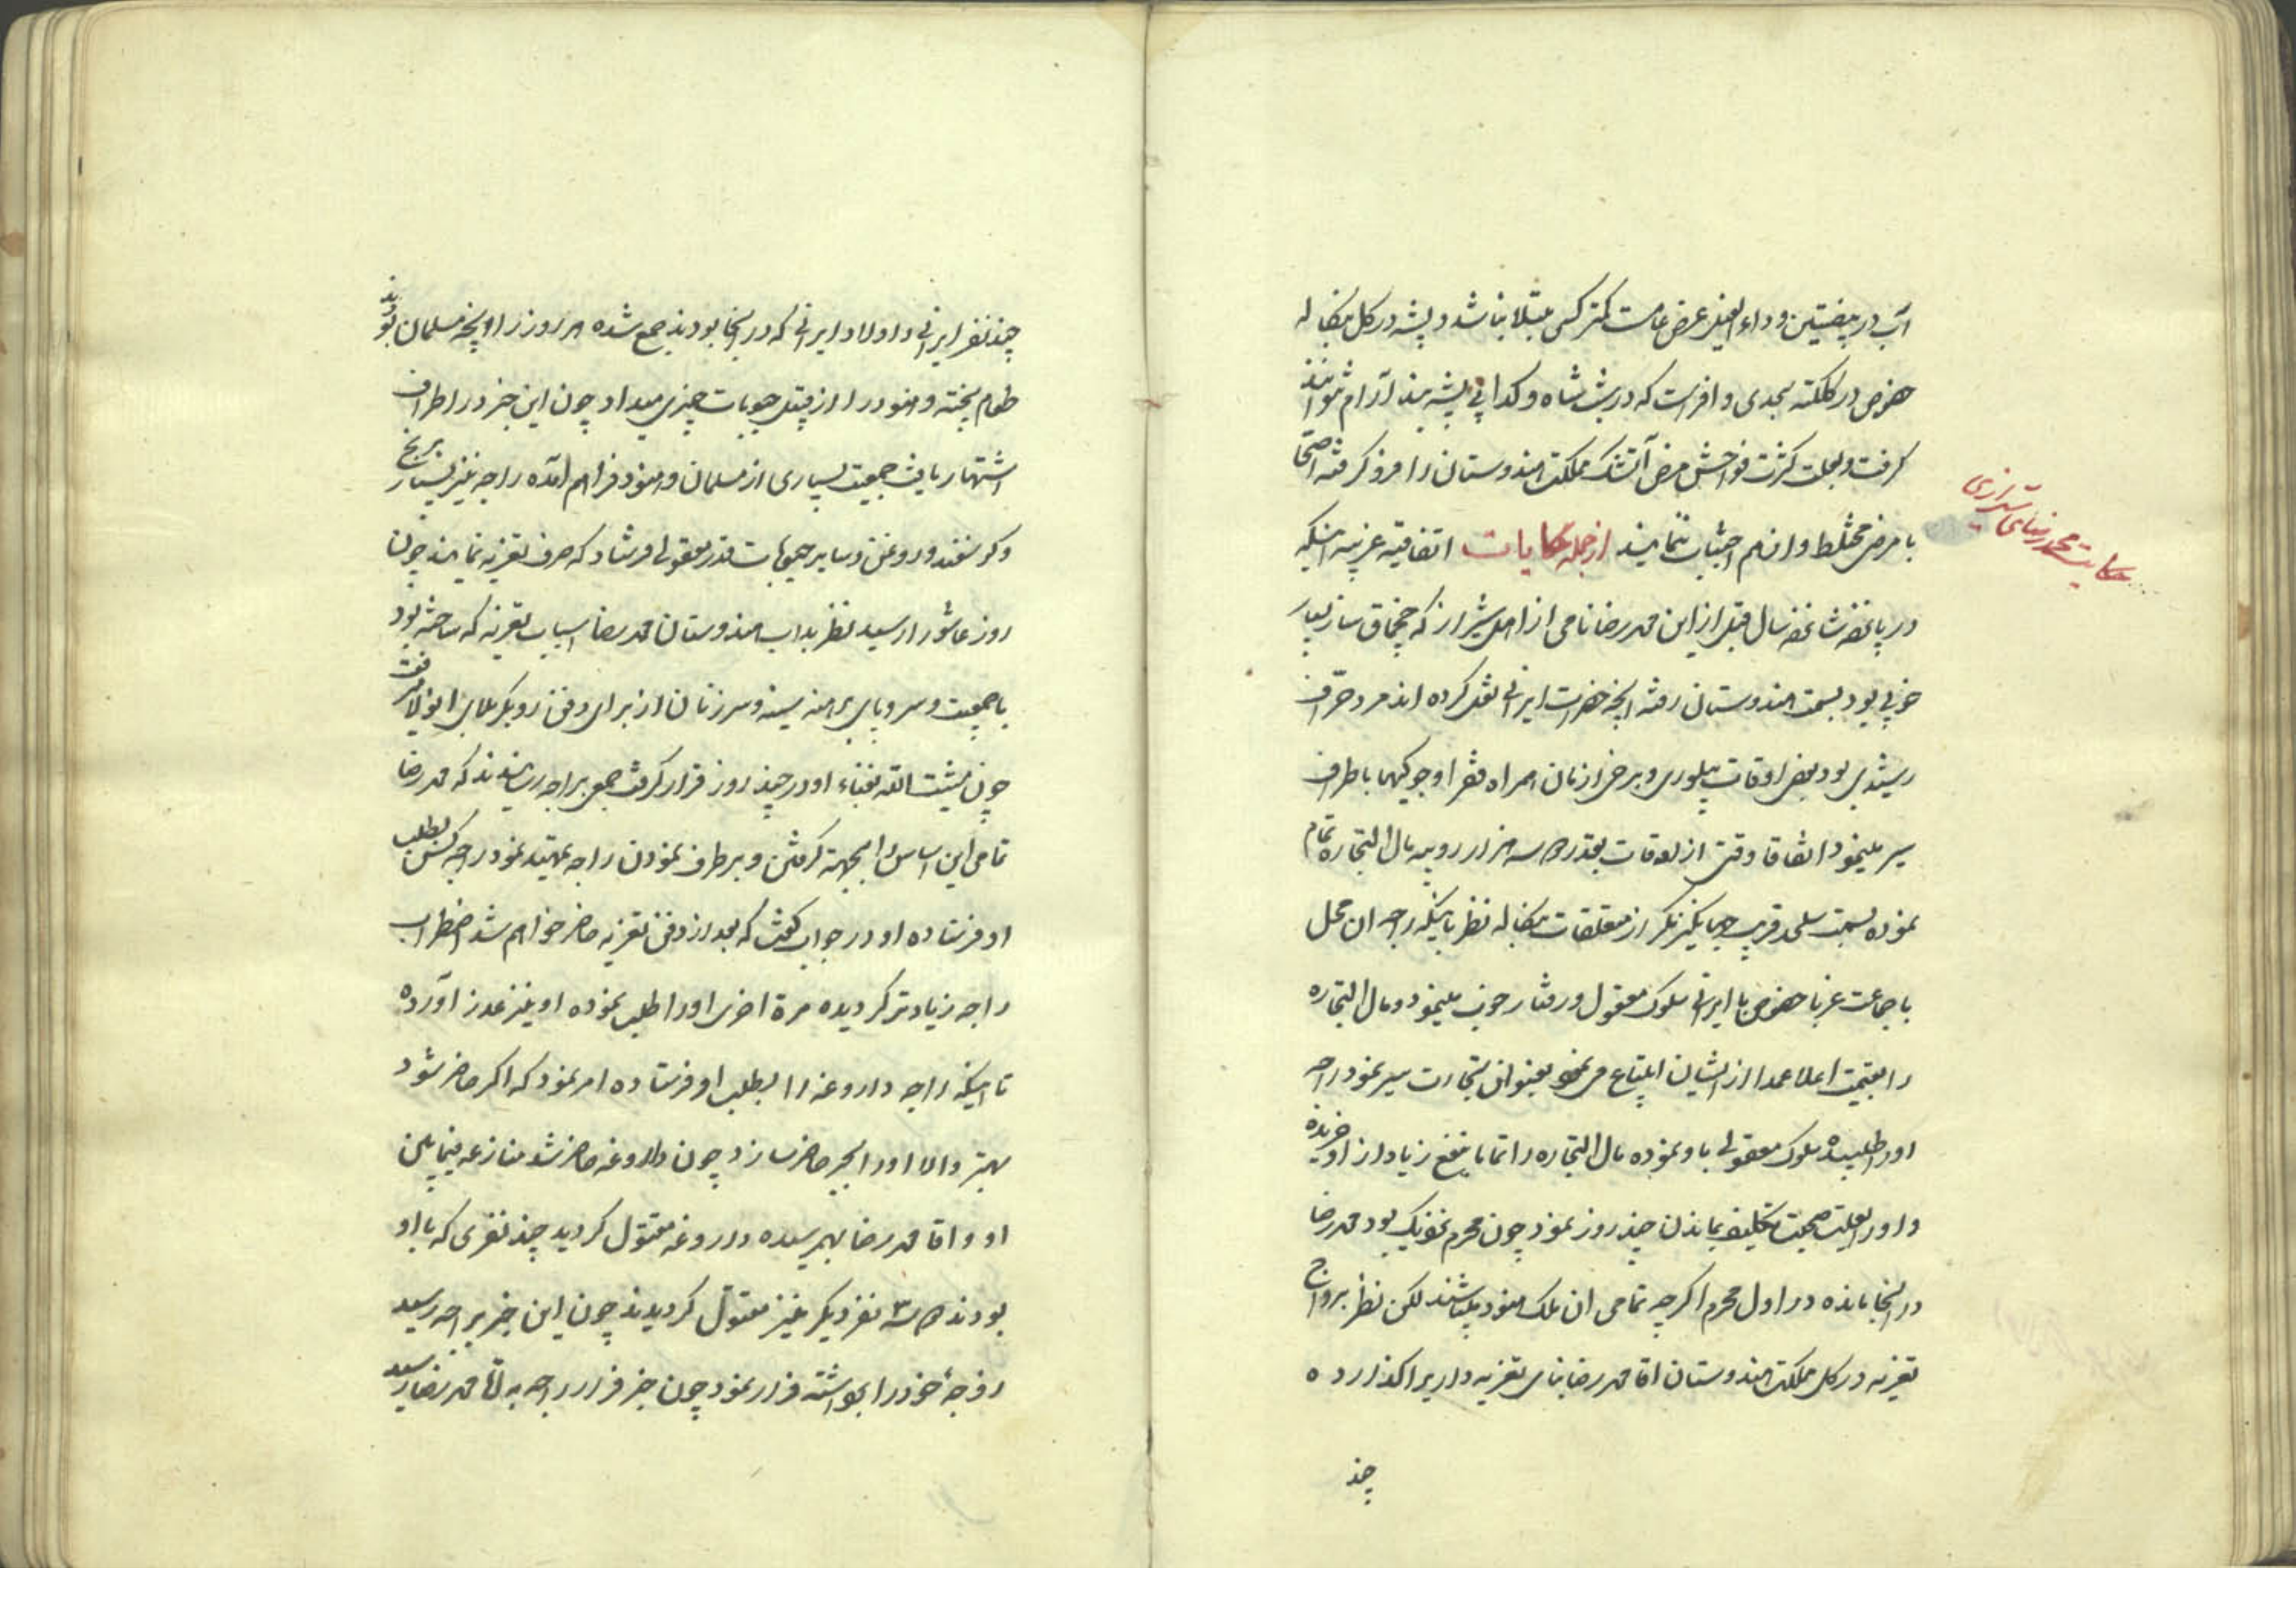 آب در بیضتین و داء الفیل عرض عامست کمتر کسی مبتلا نباشد و پشه در کل بنکاله
خصوص در کلکته بحدی وافر است که در شب شاه و کدا بی پشه بند آرام نتوانند
کرفت و بعلت کثرت فواحش مرض آتشک مملکت هندوستان را فرو کرفته اصحّا
با مرضی مختلط و از هم اجتناب ننمایند از جمله حکایات اتفاقیه غریبه اینکه
حکایت محمد رضای شیرازی
در پانصد شانصد سال قبل از این محمد رضا نامی از اهل شیراز که چخماق ساز بسیار
خوبی بود بسمت هندوستان رفته آنچه حضرات ایرانی نقل کرده اند مرد حرّاف
رشیدی بود بعضی اوقات پیلوری و برخی از زمان همراه فقرا و جوکیها باطراف
سیر مینمود اتفاقا وقتی از اوقات بقدر ۳ سه هزار روپیه مال التجاره تمام
نموده بسمت سلهد قریب جهانکیر نکر از متعلقات بنکاله نظر باینکه راجه ان محل
با جماعت غربا خصوص با ایرانی سلوک معقول و رفتار خوب مینمود و مال التجاره
را بقیمت اعلا عمدا از ایشان ابتیاع می نمود بعنوان تجارت سیر نمود راجه
اورا طلبیده سلوک معقولی با او نموده مال التجاره را تماما بنفع زیاد از او خریده
و اورا بعلت صحبت تکلیف بماندن چند روز نمود چون محرم نزدیک بود محمد رضا
در انجا مانده در اول محرم اکرچه تمامی ان ملک هنود میباشند لکن نظر برواج
تعزیه در کل مملکت هندوستان اقا محمد رضا بنای تعزیه داریرا کذارده
چند
چند نفر ایرانی و اولاد ایرانی که در انجا بودند جمع شده هر روز را آنچه مسلمان بودند
طعام پخته و هنود را از قبیل حبوبات چیزی میداد چون این خبر در اطراف
اشتهار یافت جمعیت بسیاری از مسلمان و هنود فراهم آمده راجه نیز بسیار برنج
و کوسفند و روغن و سایر حبوبات قدر معقولی فرستاد که صرف تعزیه نمایند چون
روز عاشورا رسید نظر بداب هندوستان محمد رضا اسباب تعزیه که ساخته بود
با جمعیت و سر و پای برهنه سینه و سر زنان از برای دفن رو بکربلای انولا میرفت
چون مشیت الله بفناء او در چند روز قرار کرفت جمعی براجه رسانیدند که محمد رضا
تمامی این اساس را بجهة کرفتن و برطرف نمودن راجه تمهید نمود راجه کس بطلب
او فرستاده او در جواب کفت که بعد از دفن تعزیه حاضر خواهم شد اضطراب
راجه زیادتر کردیده مرة اخری اورا طلب نموده او نیز عذر آورده
تا اینکه راجه داروغه را بطلب او فرستاده امر نمود که اکر حاضر شود
بهتر والا اورا بجبر حاضر سازد چون داروغه حاضر شد منازعه فیما بین
او و اقا محمد رضا بهمرسیده داروغه مقتول کردید چند نفری که با او
بودند ۳ سه نفر دیکر نیز مقتول کردیدند چون این خبر براجه رسید
زوجهٔ خود را برداشته فرار نمود چون خبر فرار راجه به اقا محمد رضا رسید